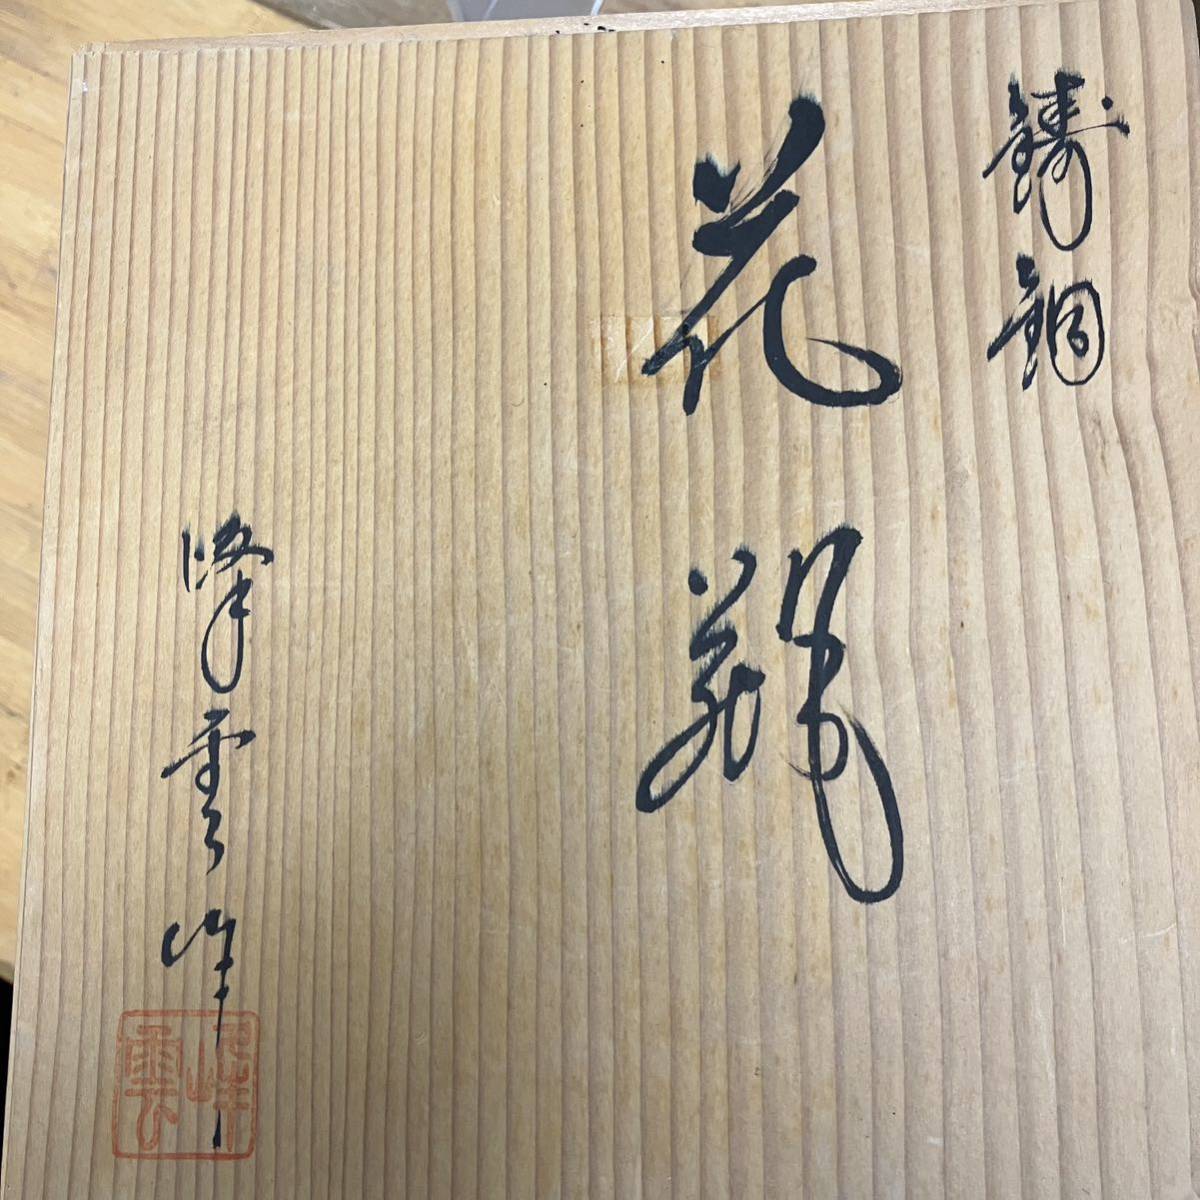 鋳銅
花瓶
峰雲作
峰雲